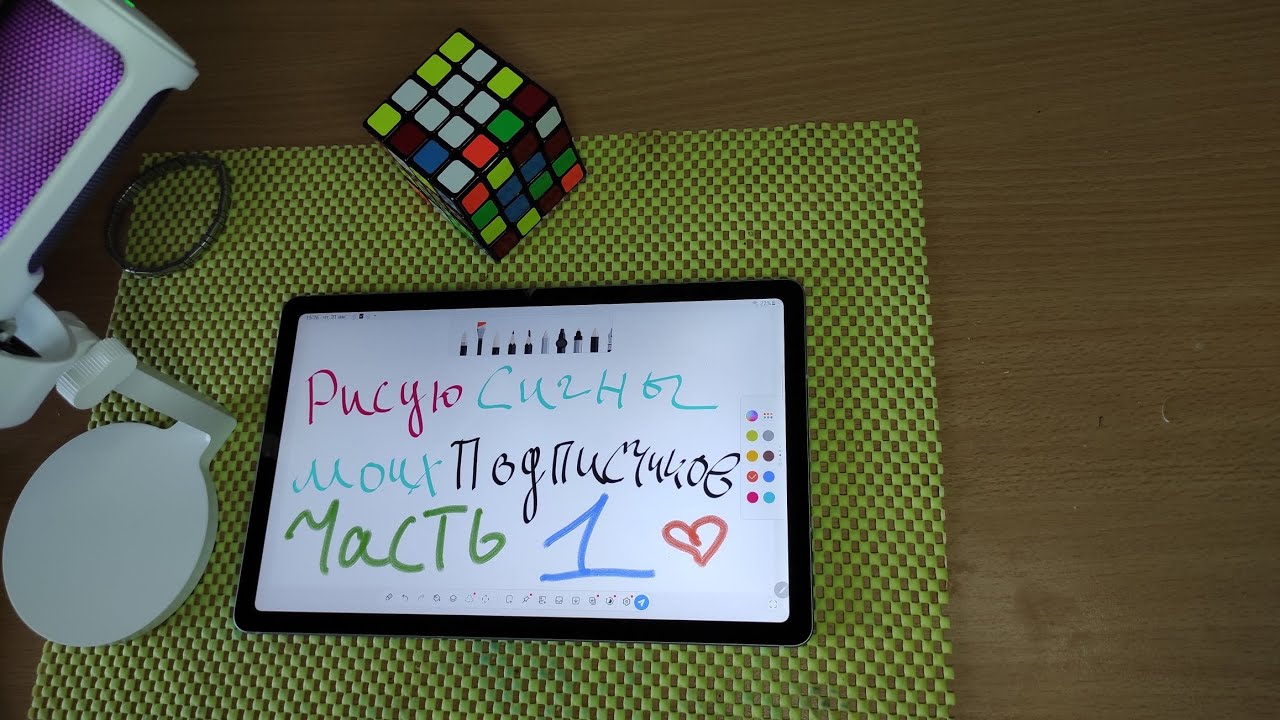 Рисую Сигны
моих Подписчиков
Часть 1